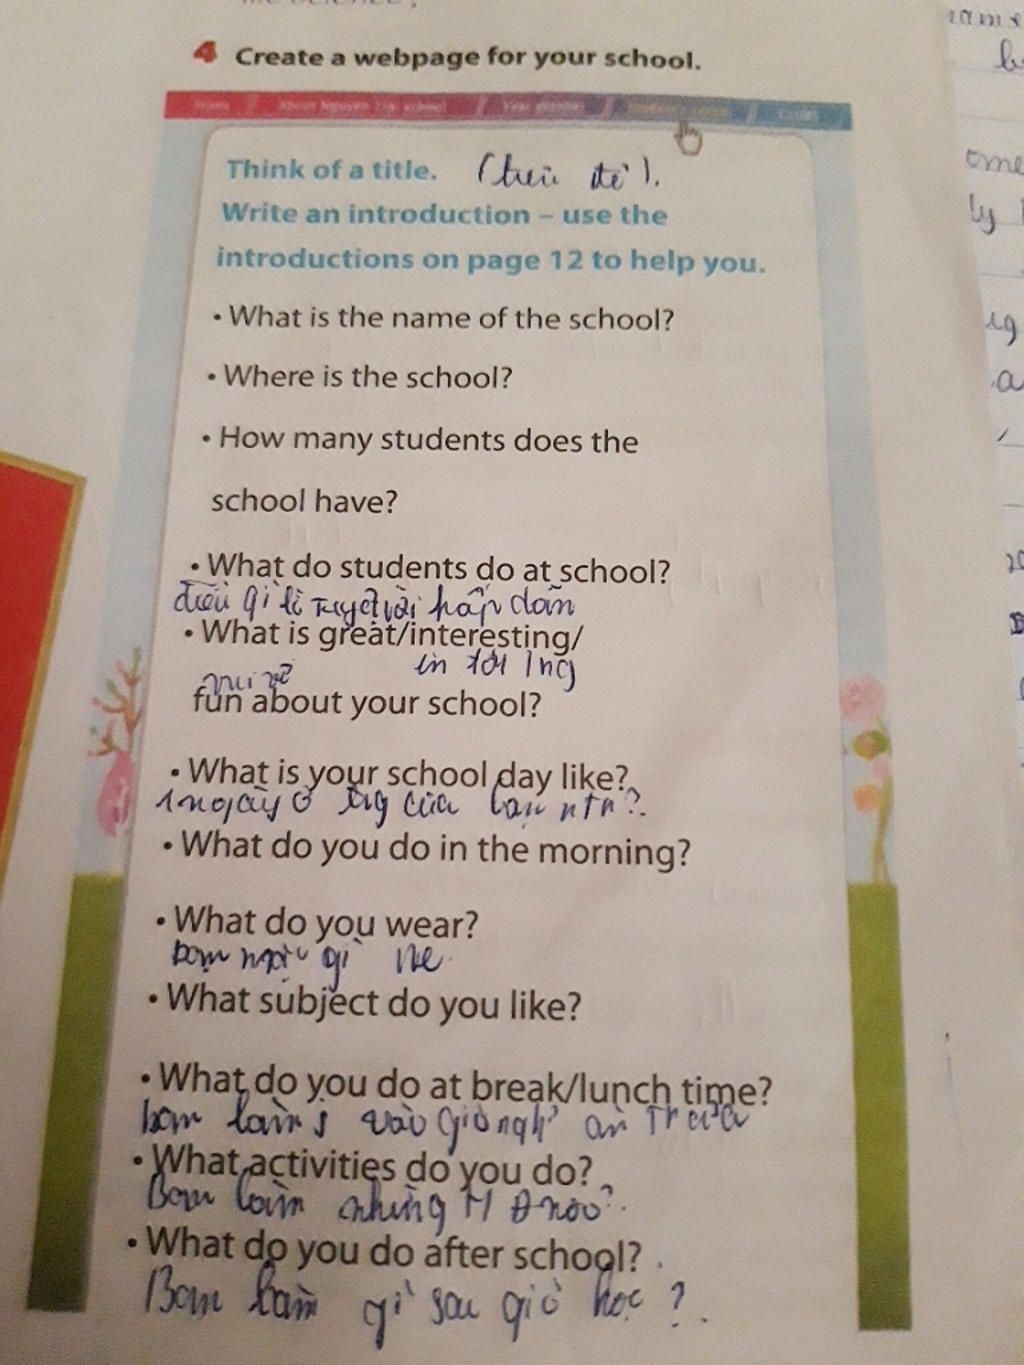 4 Create a webpage for your school.
Think of a title. (tiêu đề).
Write an introduction – use the
introductions on page 12 to help you.
• What is the name of the school?
• Where is the school?
• How many students does the
school have?
• What do students do at school?
điều gì là tuyệt vời hấp dẫn
• What is great/interesting/
in tơi ing
vui vẻ
fun about your school?
• What is your school day like?
1 ngày ở trg của bạn ntn?.
• What do you do in the morning?
• What do you wear?
bạn mặc gì
• What subject do you like?
• What do you do at break/lunch time?
bạn làm vào giờ nghỉ ăn trưa
• What activities do you do?
Bạn làm những HĐ nào?.
• What do you do after school?
Bạn làm gì sau giờ học ?.